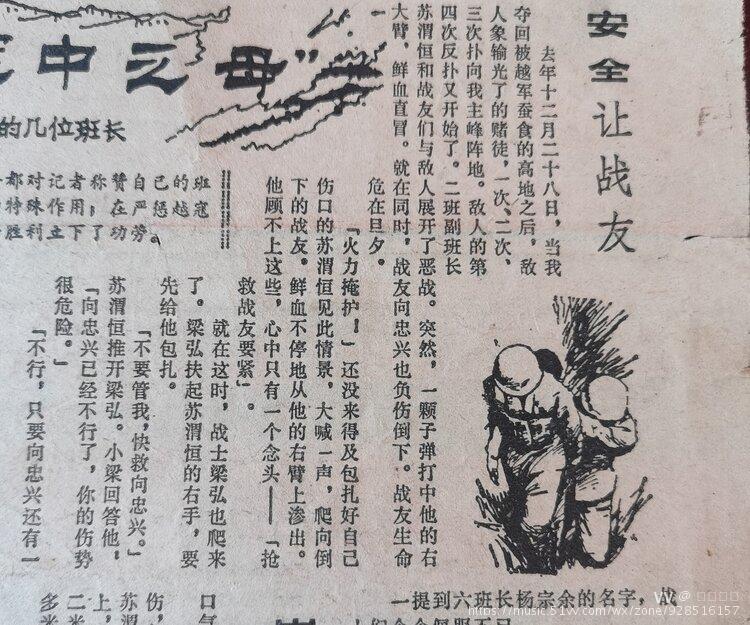 安全让战友
去年十二月二十八日,当我
夺回被越军蚕食的高地之后,敌
人象输光了的赌徒,一次、二次、
三次扑向我主峰阵地。敌人的第
四次反扑又开始了。二班副班长
苏渭恒和战友们与敌人展开了恶战。突然,一颗子弹打中他的右
大臂,鲜血直冒。就在同时,战友向忠兴也负伤倒下。战友生命
危在旦夕。
“火力掩护!”还没来得及包扎好自己
伤口的苏渭恒见此情景,大喊一声,爬向倒
下的战友。鲜血不停地从他的右臂上渗出。
他顾不上这些,心中只有一个念头——“抢
救战友要紧”。
就在这时,战士梁弘也爬来
了。梁弘扶起苏渭恒的右手,要
先给他包扎。
“不要管我,快救向忠兴。”
苏渭恒推开梁弘。小梁回答他,
“向忠兴已经不行了,你的伤势
很危险。”
“不行,只要向忠兴还有一
中之母”
的几位班长
都对记者称赞自己的班
特殊作用;在严惩越寇
胜利立下了功劳。
一提到六班长杨宗余的名字,战
口气
伤,
苏渭
上,
二米
多米
https://music.51vv.com/wx/zone/928516157